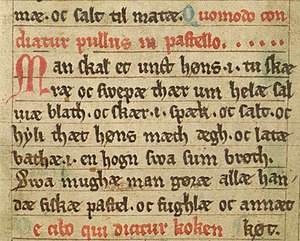 mæ · oc salt til matæ · Quomodo con
diatur pullus in pastello . . . . . .
Man skal et unct høns · i · tu skæ
ræ oc swepæ thær um helæ sal
uiæ blath · oc skær · i · spæk · oc salt · oc
hyli thæt høns mæth degh · oc latæ
bathæ · i · en hogn swa sum brøth ·
Swa mughæ man gøræ allæ han
dæ fiskæ pastel · oc fughlæ oc annæt
De cibo qui dicitur koken køt .